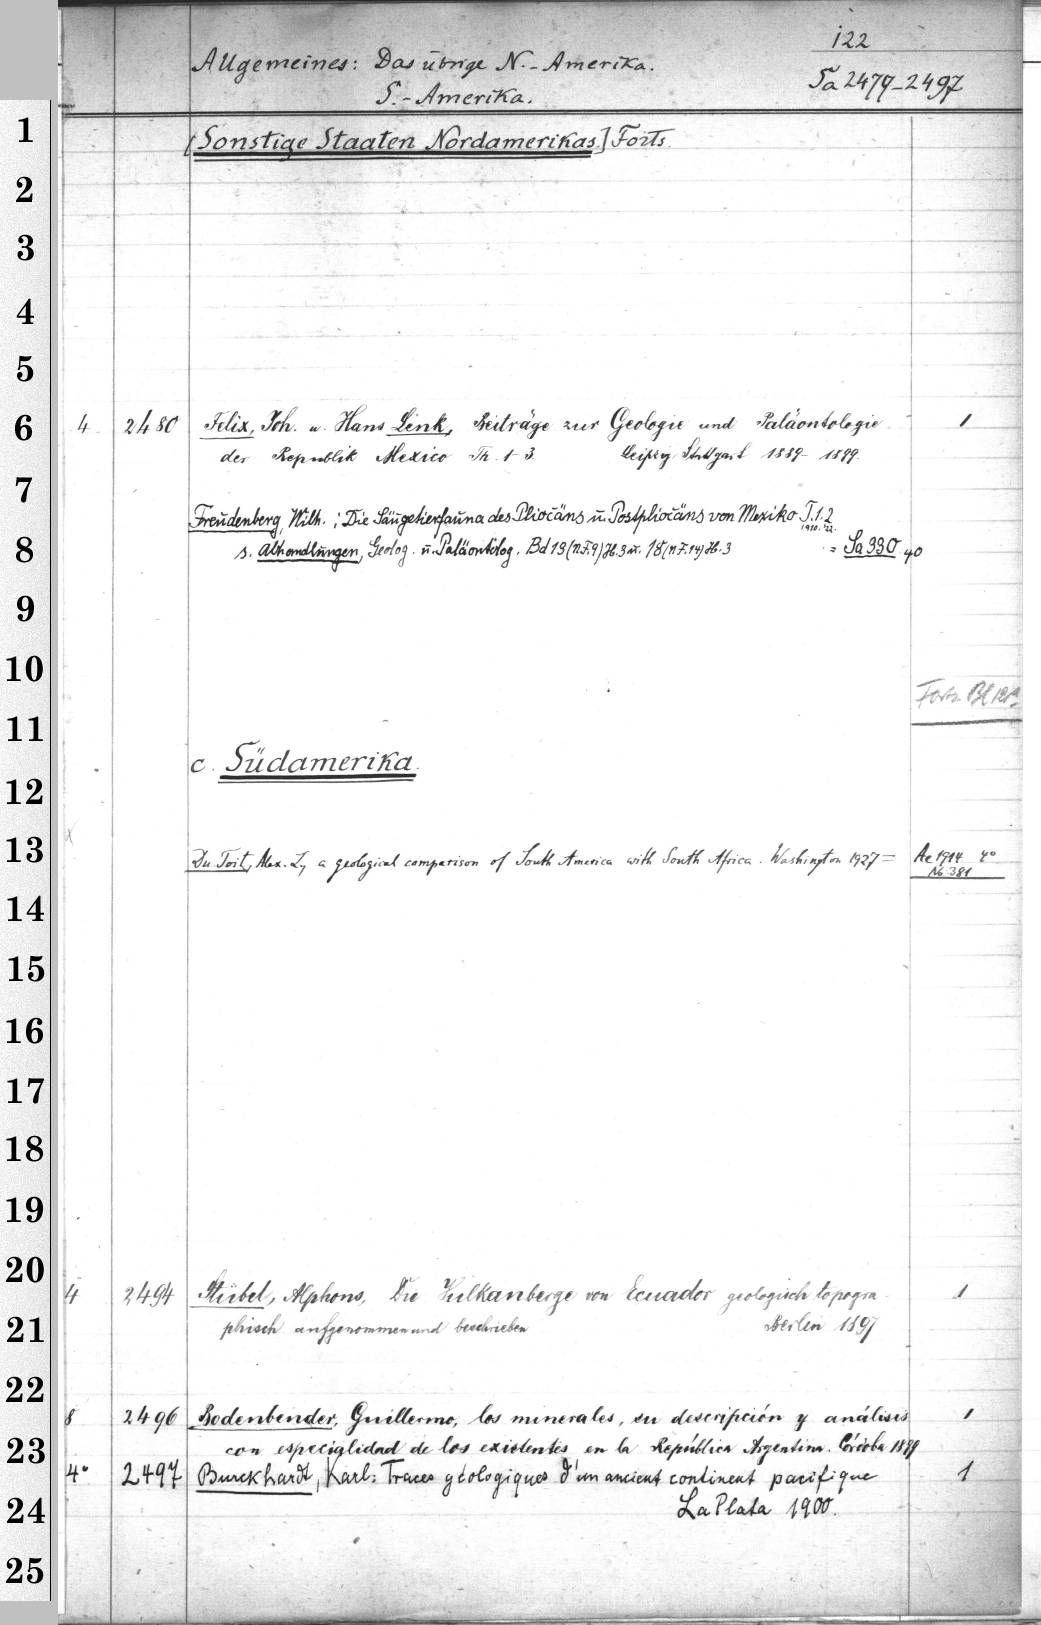 122
Allgemeines: Das übrige N.-Amerika.
S.-Amerika.
Sa 2479-2497
[Sonstige Staaten Nordamerikas.] Forts.
1
2
3
4
5
6
4 2480 Felix, Joh. u. Hans Lenk, Beiträge zur Geologie und Paläontologie 1
der Republik Mexico Th. 1-3. Leipzig Stuttgart 1889-1899.
7
Freudenberg, Wilh.: Die Säugetierfauna des Pliocäns u. Postpliocäns von Mexiko T.1.2
1910.'22.
8
s. Abhandlungen, Geolog. u. Paläontolog. Bd 13 (N.F.9) H.3 u. 18 (N.F.14) H.3 = Sa 330 4o
9
10
Forts. Bl
11
c. Südamerika.
12
13
Du Toit, Alex. L, a geological comparison of South America with South Africa. Washington 1927 = Ae 1914 4°
No 381
14
15
16
17
18
19
20
4 2494 Stübel, Alphons, Die Vulkanberge von Ecuador geologisch topogra- 1
21
phisch aufgenommen und beschrieben Berlin 1897
22
8 2496 Bodenbender, Guillermo, los minerales, su descripción y análisis 1
23
con especialidad de los existentes en la República Argentina. Córdoba 1899
4° 2497 Burckhardt, Karl: Traces géologiques d'un ancient continent pacifique 1
24
La Plata 1900.
25